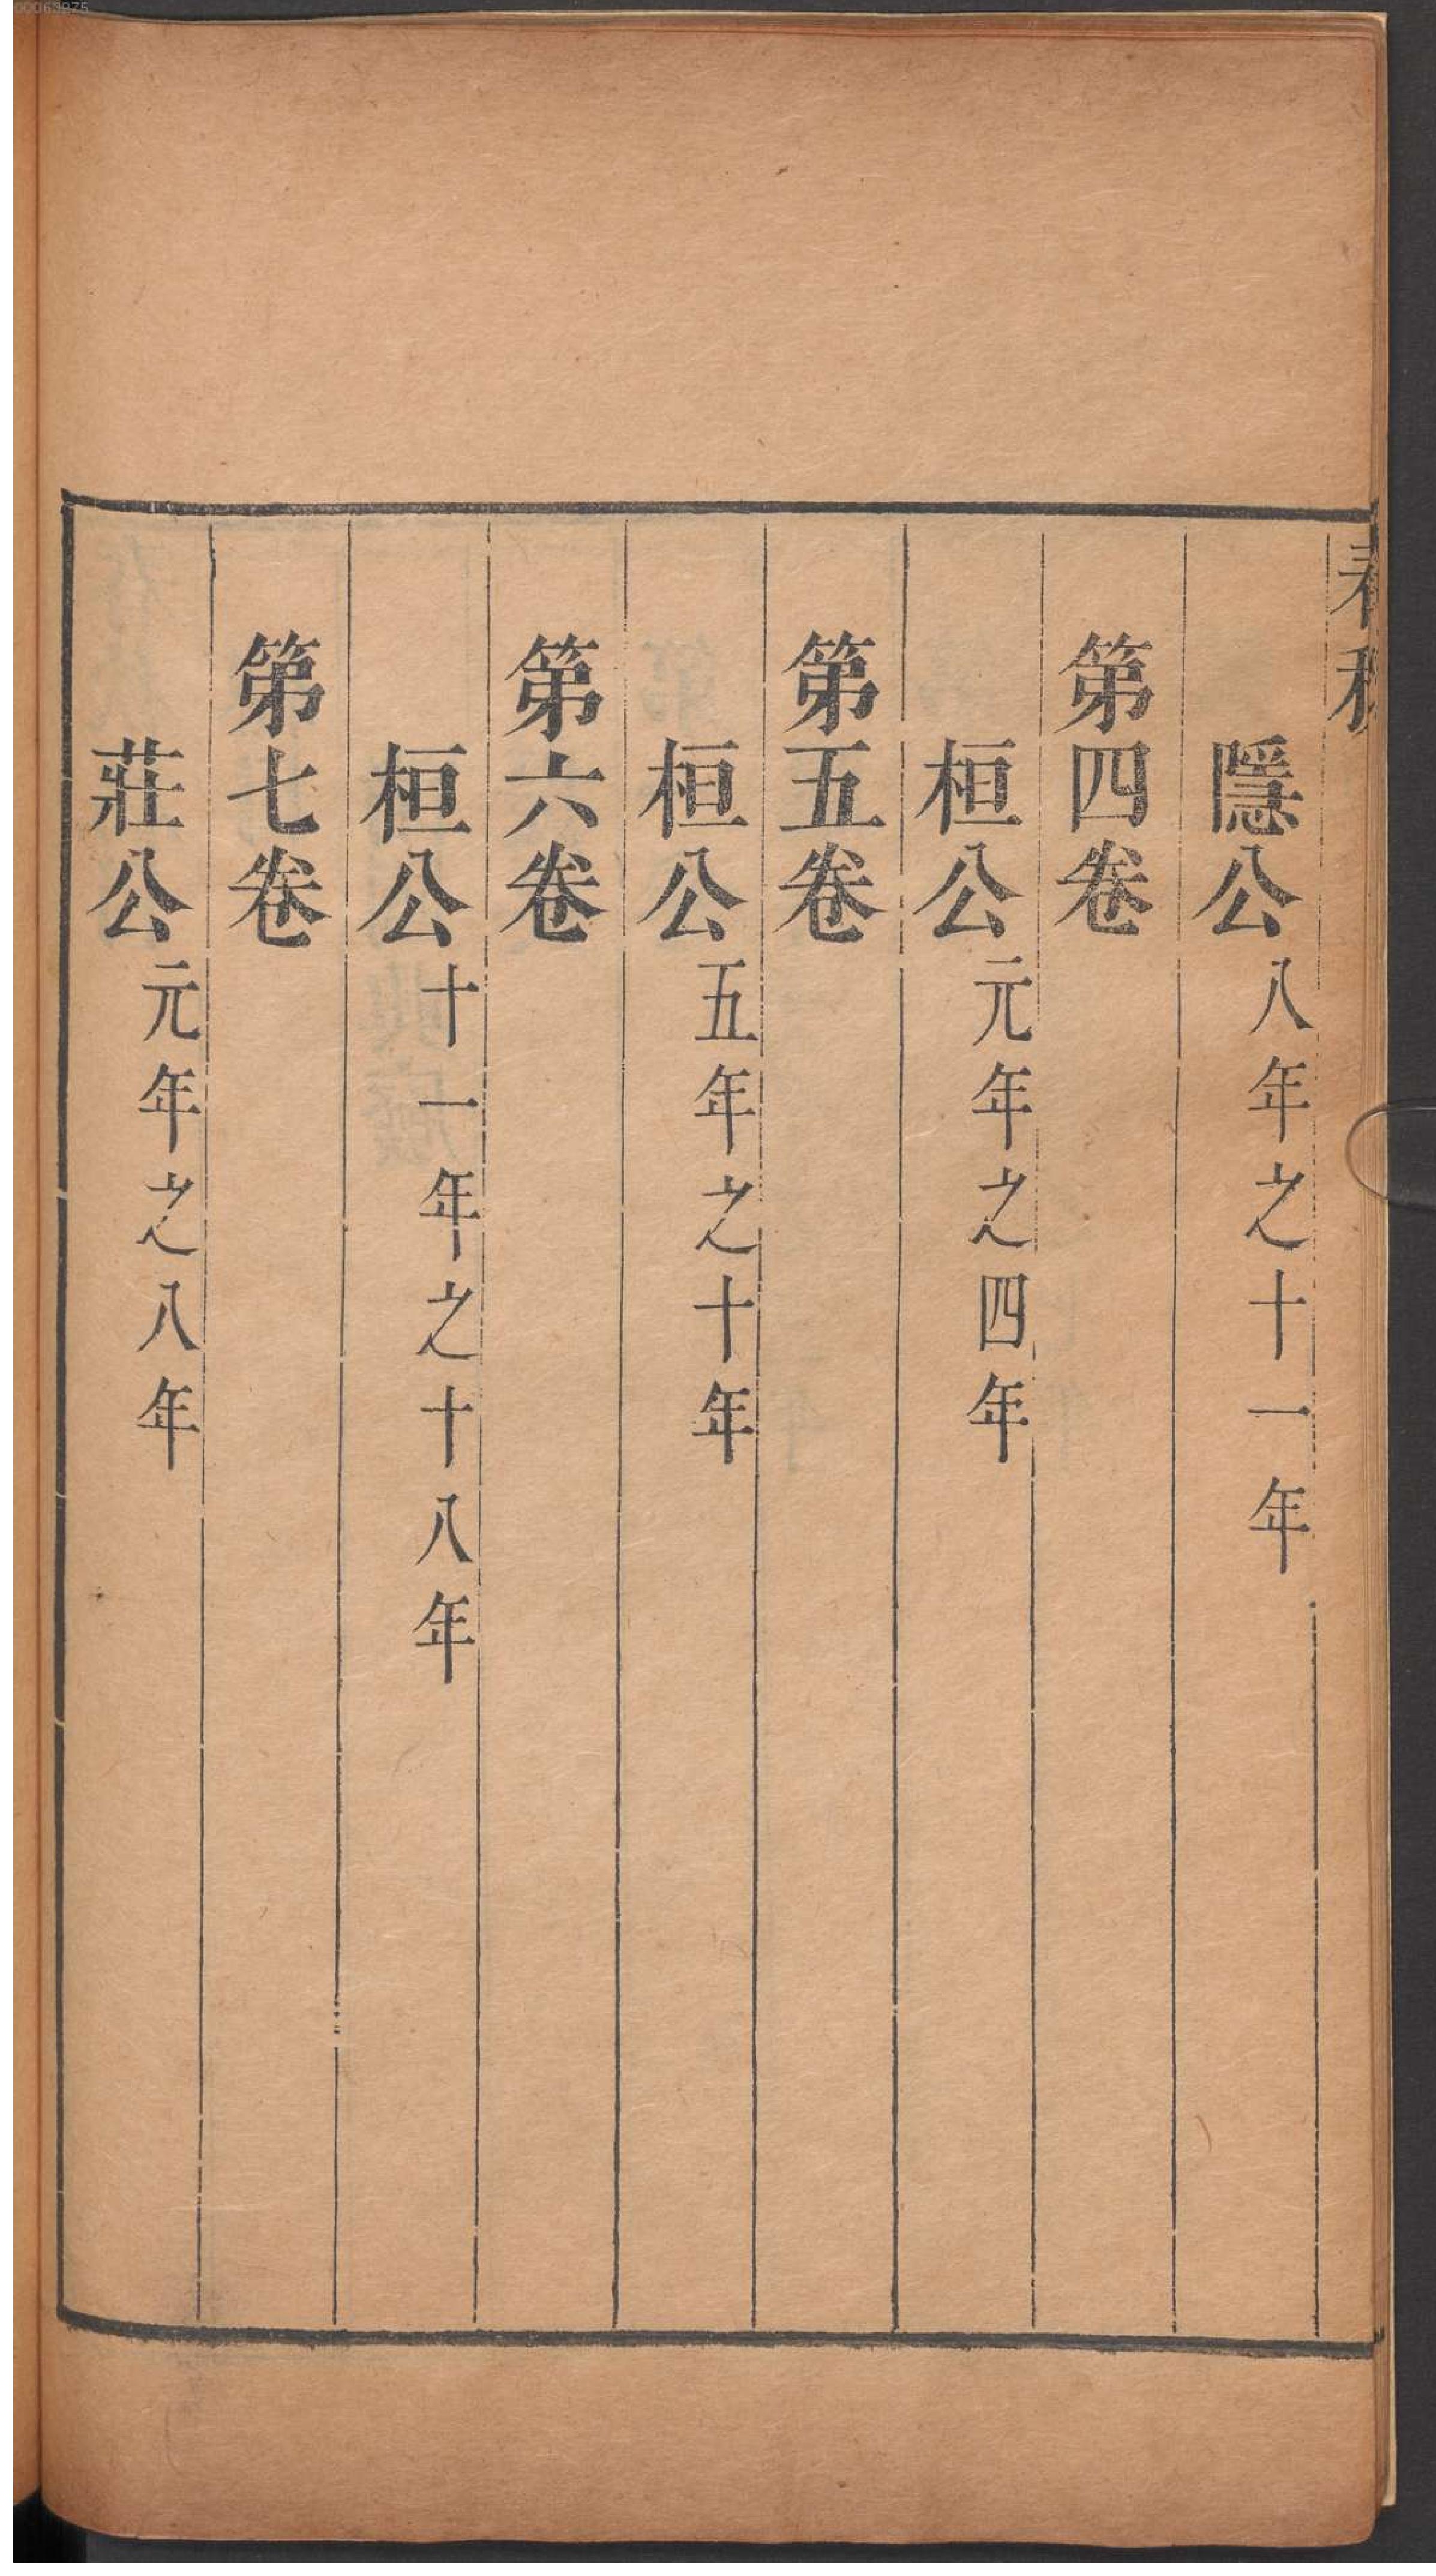 春秋
隱公八年之十一年
第四卷
桓公元年之四年
第五卷
桓公五年之十年
第六卷
桓公十一年之十八年
第七卷
莊公元年之八年